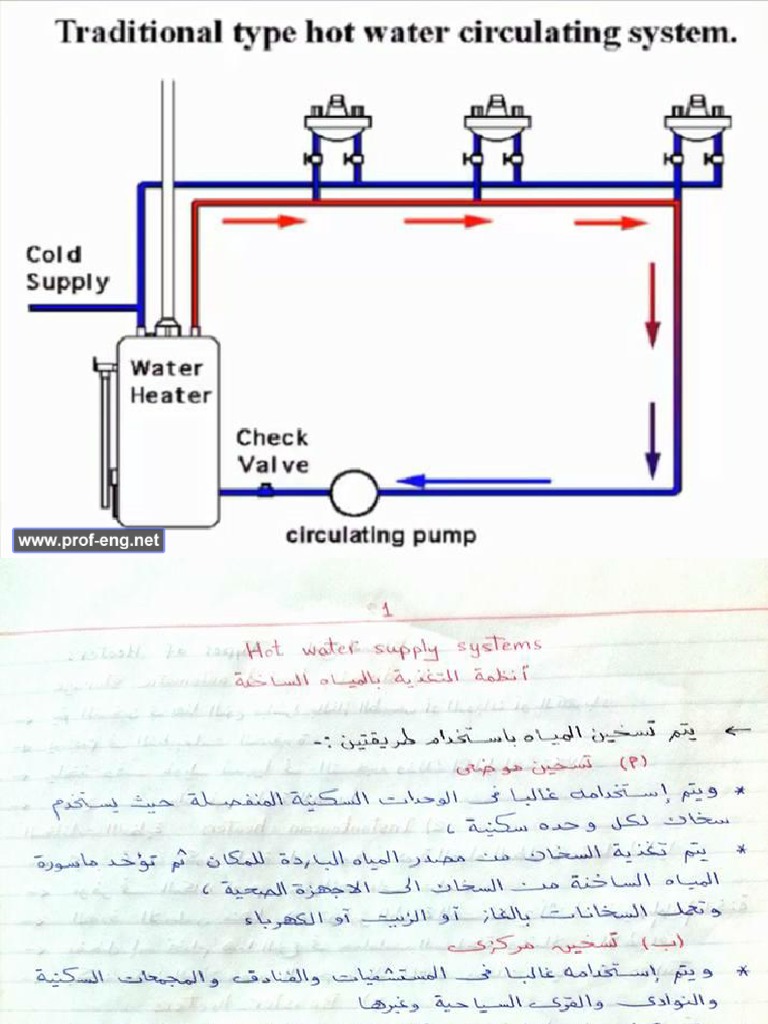 Traditional type hot water circulating system.
Cold
Supply
Water
Heater
Check
Valve
circulating pump
www.prof-eng.net
1
Hot water supply systems
أنظمة التغذية بالمياه الساخنة
← يتم تسخين المياه باستخدام طريقتين :-
(أ) تسخين موضعى
* ويتم إستخدامه غالبا فى الوحدات السكنية المنفصلة حيث يستخدم
سخان لكل وحده سكنية ،
* يتم تغذية السخان من مصدر المياه الباردة للمكان ثم تؤخذ ماسورة
المياه الساخنة من السخان الى الاجهزة الصحية ،
وتعمل السخانات بالغاز أو الزيت أو الكهرباء
(ب) تسخين مركزى
* ويتم إستخدامه غالبا فى المستشفيات والفنادق والمجمعات السكنية
والنوادى والقرى السياحية وغيرها